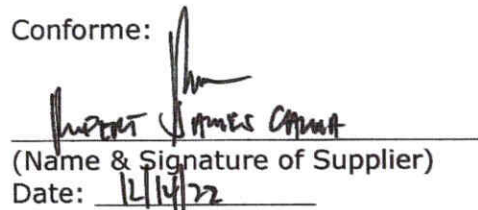 Conforme:
JAMES
(Name & Signature of Supplier)
Date: 12/14/22